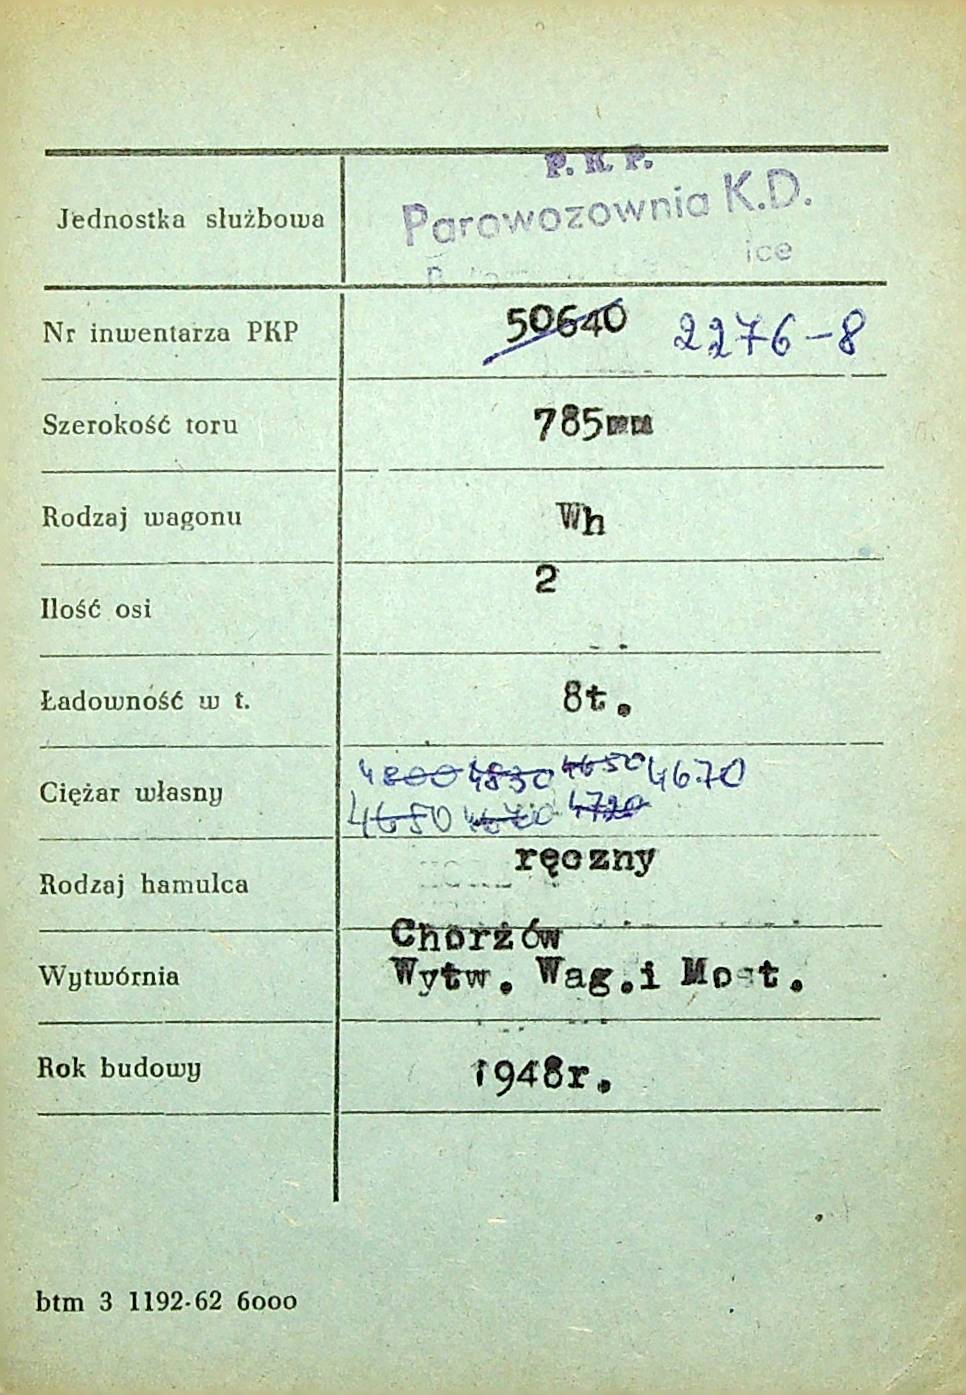 P. K. P.
Jednostka służbowa Parowozownia K.D.
Nr inwentarza PKP 50640 2276-8
Szerokość toru 785mm
Rodzaj wagonu Wh
Ilość osi 2
Ładowność w t. 8t.
Ciężar własny 4800 4830 4650 4670
4650 4720
Rodzaj hamulca ręczny
Chorzów
Wytwórnia Wytw. Wag.i Most.
Rok budowy 1948r.
btm 3 1192-62 6ooo